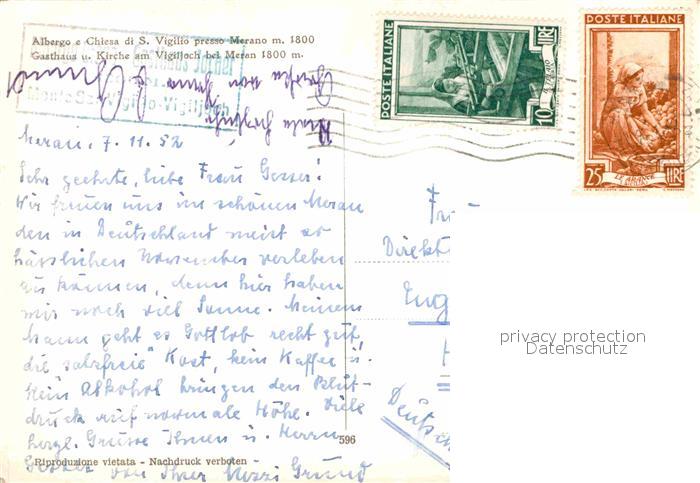 Albergo e Chiesa di S. Vigilio presso Merano m. 1800
Gasthaus u. Kirche am Vigiljoch bei Meran 1800 m.
Monte San Vigilio-Vigiljoch
POSTE ITALIANE
10 LIRE
POSTE ITALIANE
25 LIRE
Meran, 7. 11. 52
Sehr geehrte, liebe Frau Gesser!
Wir freuen uns im schönen Meran
den in Deutschland meist so
hässlichen November verleben
zu können, denn hier haben
wir noch viel Sonne. Meinem
Mann geht es Gottlob recht gut,
die "salzfreie" Kost, kein Kaffee u.
kein Alkohol bringen den Blut-
druck auf normale Höhe. Viele
herzl. Grüsse Ihnen u. Herrn
von Ihrer Mizzi Grund
Direkt
Deutsch
596
Riproduzione vietata - Nachdruck verboten
privacy protection
Datenschutz